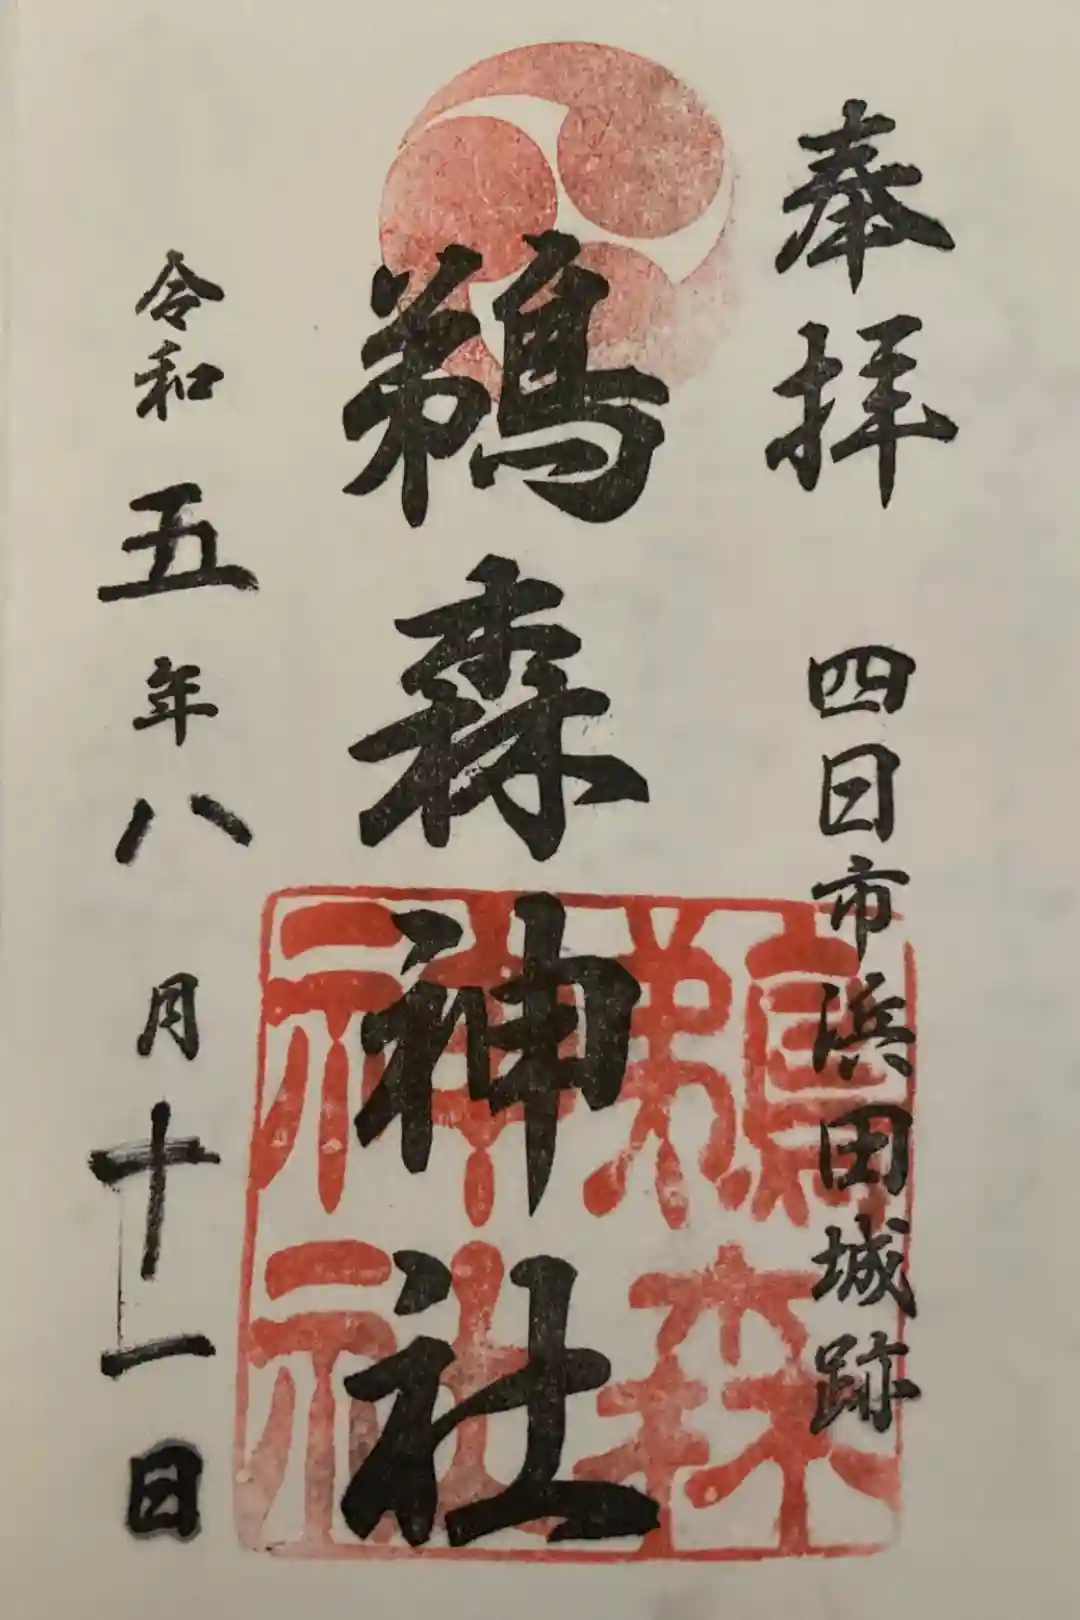 奉拝 四日市浜田城跡
鵜森神社
鵜森神社
令和五年八月十一日